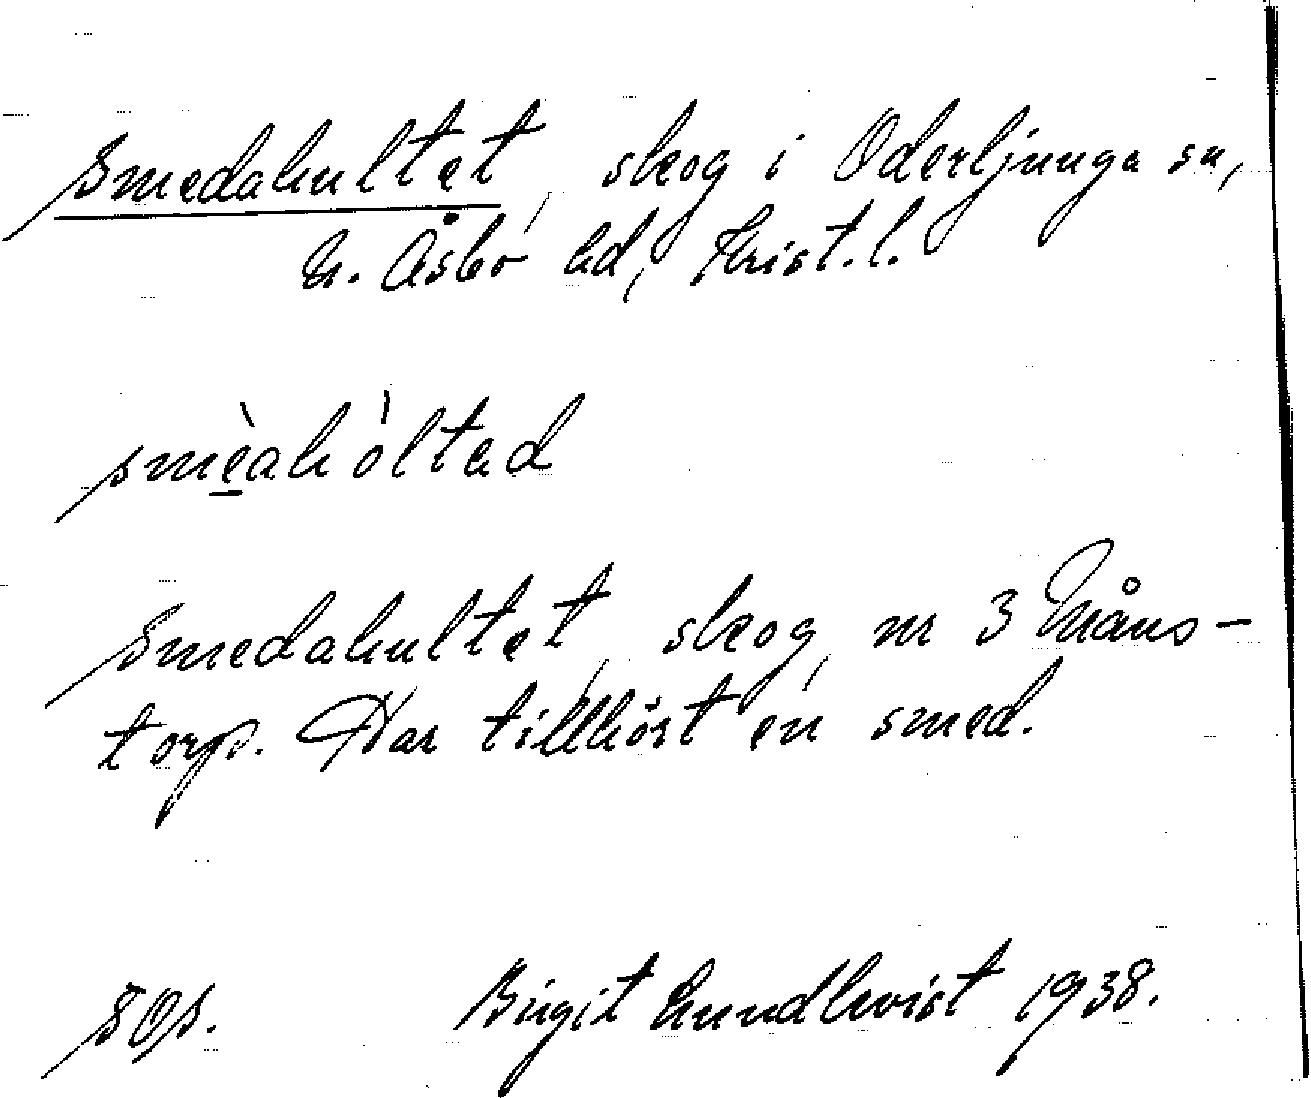 Smedahultet, skog i Oderljunga sn,
N. Åsbo hd, Krist. l.
smèahòltəd
Smedahultet, skog, nr 3 Måns-
torp. Har tillhört en smed.
SOS. Birgit Lundkvist 1938.